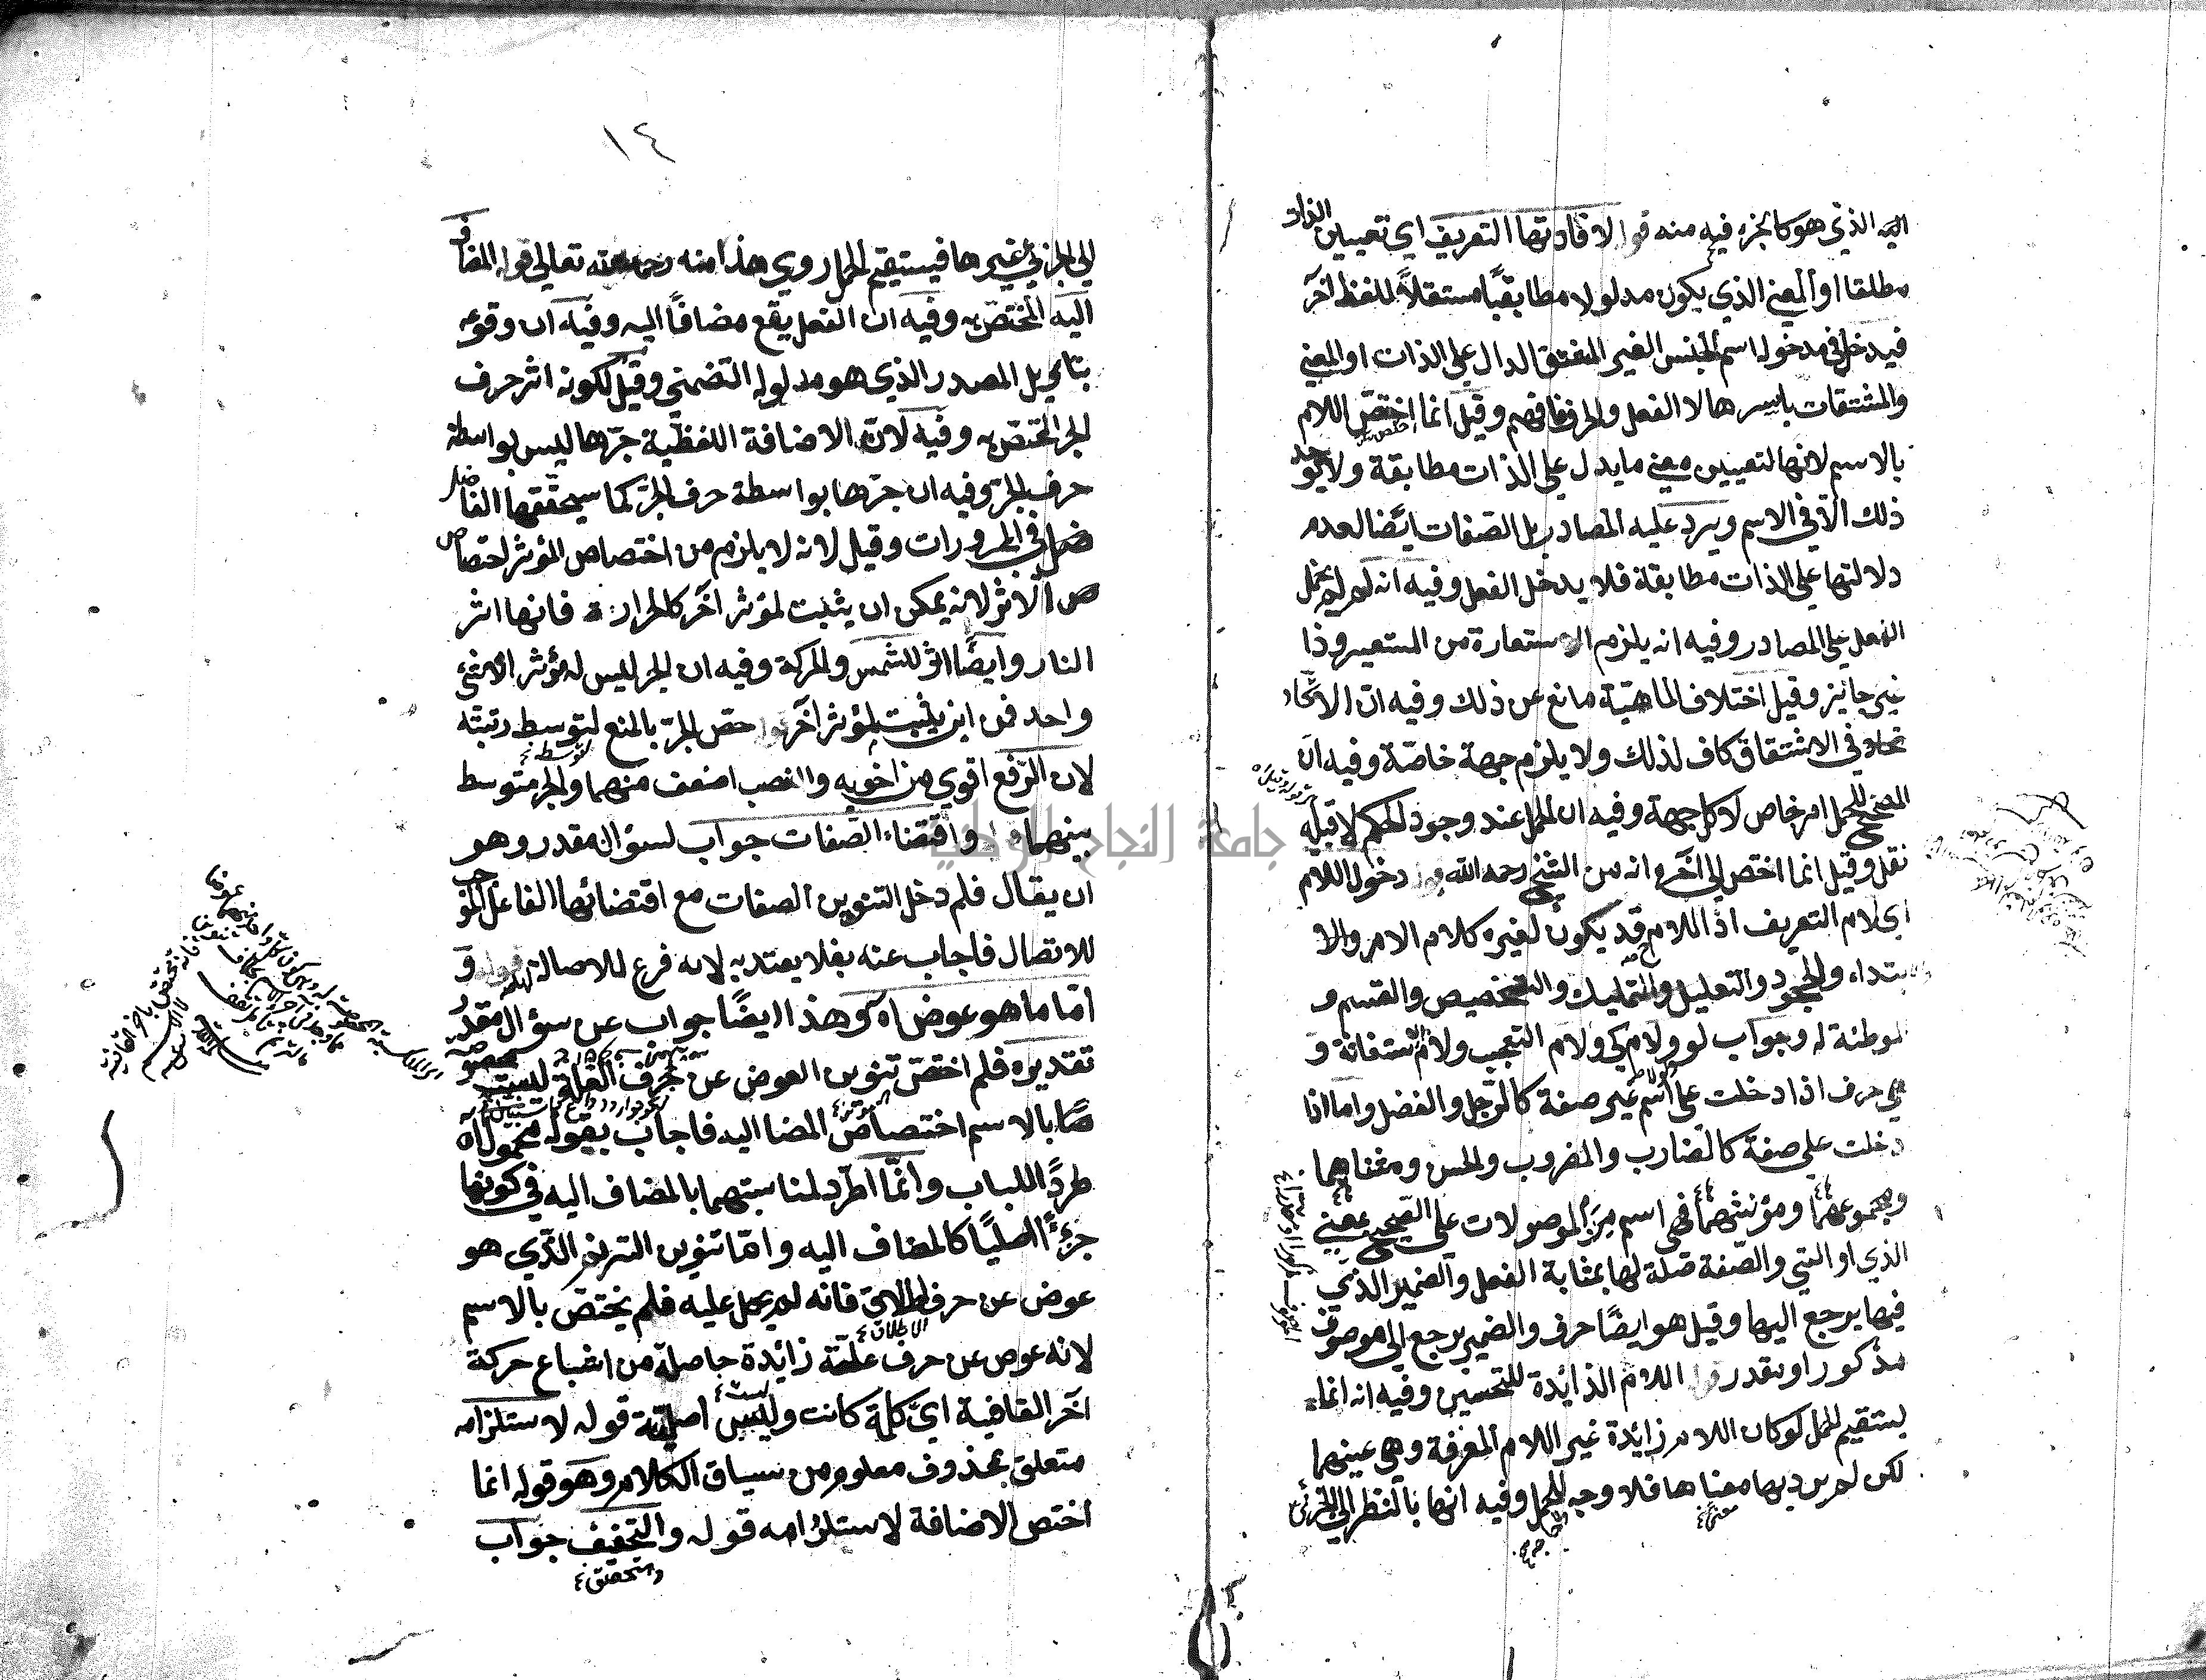 اليه الذي هو كالجزء فيه منه قوله لافادتها التعريف اي تعيين الذات
مطلقا او المعني الذي يكون مدلولا مطابقيًا مستقلاً للفظ آخر
فيدخل في مدخوله اسم الجنس الغير المشتق الدال علي الذات او المعني
والمشتقات باسرها لا الفعل والحرف فافهم وقيل انما اختص اللام
بالاسم لانها لتعيين معني ما يدل علي الذات مطابقة ولا يوجد
ذلك الّا في الاسم ويرد عليه المصادر بل الصّفات ايضا لعدم
دلالتها علي الذات مطابقة فلا يدخل الفعل وفيه انه لم لم يحمل
الفعل علي المصادر وفيه انه يلزم الاستعارة من المستعير وذا
غير جايز وقيل اختلاف الماهيّة مانع عن ذلك وفيه ان الاتحاد
تحاد في الاشتقاق كاف لذلك ولا يلزم جهة خاصّة وفيه ان
المصحح للحمل امر خاص لا كل جهة وفيه ان الحمل عند وجود الحكم لا قبله
نقل وقيل انما اختص الي آخره انه من الشيخ رحمه الله قوله دخول اللام
اي لام التعريف اذ اللام قد يكون لغيره كلام الامر والا
بتداء والجحود والتعليل والتمليك والتخصيص والقسم و
لموطئة له وجواب لو ولام كي ولام التعجب ولام الاستغاثة و
هي حرف اذا دخلت علي اسم غير صفة كالرّجل والفضل واما اذا
دخلت علي صفة كالضارب والمضروب والحسن ومثناهما
ومجموعهما ومؤنثهما فهي اسم من الموصولات علي الصّحيح بمعني
الذي او التي والصّفة صلة لها بمثابة الفعل والضمير الذي
فيها يرجع اليها وقيل هو ايضًا حرف والضمير يرجع الي موصوف
مذكور او مقدر قوله اللام الزائدة للتحسين وفيه انه انما
يستقيم الحمل لو كان اللام زايدة غير اللام المعرفة وهي عينهما
لكن لم يرد بها معناها فلا وجه للحمل وفيه انها بالنظر الي الجزئي
١٤
الي الجزئي غيرها فيستقيم الحمل روي هذا منه رحمة الله تعالي قوله المضاف
اليه المختصّ به وفيه ان الفعل يقع مضافًا اليه وفيه ان وقوعه
بتاويل المصدر الذي هو مدلوله التضمني وقيل لكونه اثر حرف
الجر المختصّ به وفيه لانّ الاضافة اللفظية جرّها ليس بواسطة
حرف الجرّ وفيه ان جرّها بواسطة حرف الجرّ كما سيحققها الفاضل
ضل في المجرورات وقيل لانه لا يلزم من اختصاص المؤثر اختصاص
ص الاثر لانه يمكن ان يثبت لمؤثر آخر كالحرارة فانها اثر
النار وايضًا اثر للشمس والحركة وفيه ان الجر ليس له مؤثر الا شئ
واحد فمن اين يثبت لمؤثر آخر قوله خصّ الجرّ بالمنع لتوسط رتبته
لان الرّفع اقوي من اخويه والنصب اضعف منهما والجر متوسط
بينهما قوله واقتضاء الصّفات جواب لسؤال مقدر وهو
ان يقال فلم دخل التنوين الصفات مع اقتضائها الفاعل الموجب
للاتصال فاجاب عنه بفلا يعتد به لانه فرع للاصالة قوله و
امّا ما هو عوض اه وهذا ايضًا جواب عن سؤال مقدر
تقديره فلم اختصّ تنوين العوض عن حرف العلة ليست مخصوصة
صًا بالاسم اختصاص المضاف اليه فاجاب بقوله محمول اه
طردًا للباب وانّما اطّرد لمناسبتهما بالمضاف اليه في كونها
جزءًا اصليًا كالمضاف اليه وامّا تنوين الترنم الذي هو
عوض عن حرف الاطلاق فانه لم يحمل عليه فلم يختصّ بالاسم
لانه عوض عن حرف علّة زائدة حاصلة من اشباع حركة
آخر القافية ايّ كلمة كانت وليس اصليّة قوله لاستلزامه
متعلق بمحذوف معلوم من سياق الكلام وهو قوله انما
اختص الاضافة لاستلزامه قوله والتخفيف جواب
جامعة النجاح الوطنية